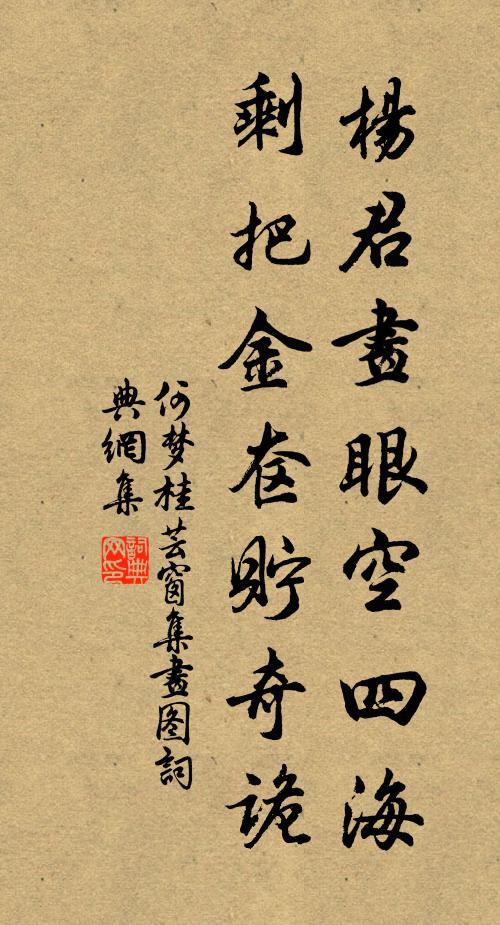 楊君畫眼空四海
剩把金奁貯奇詭
何梦桂芸窗集畫图詞
典網集
詞典网印